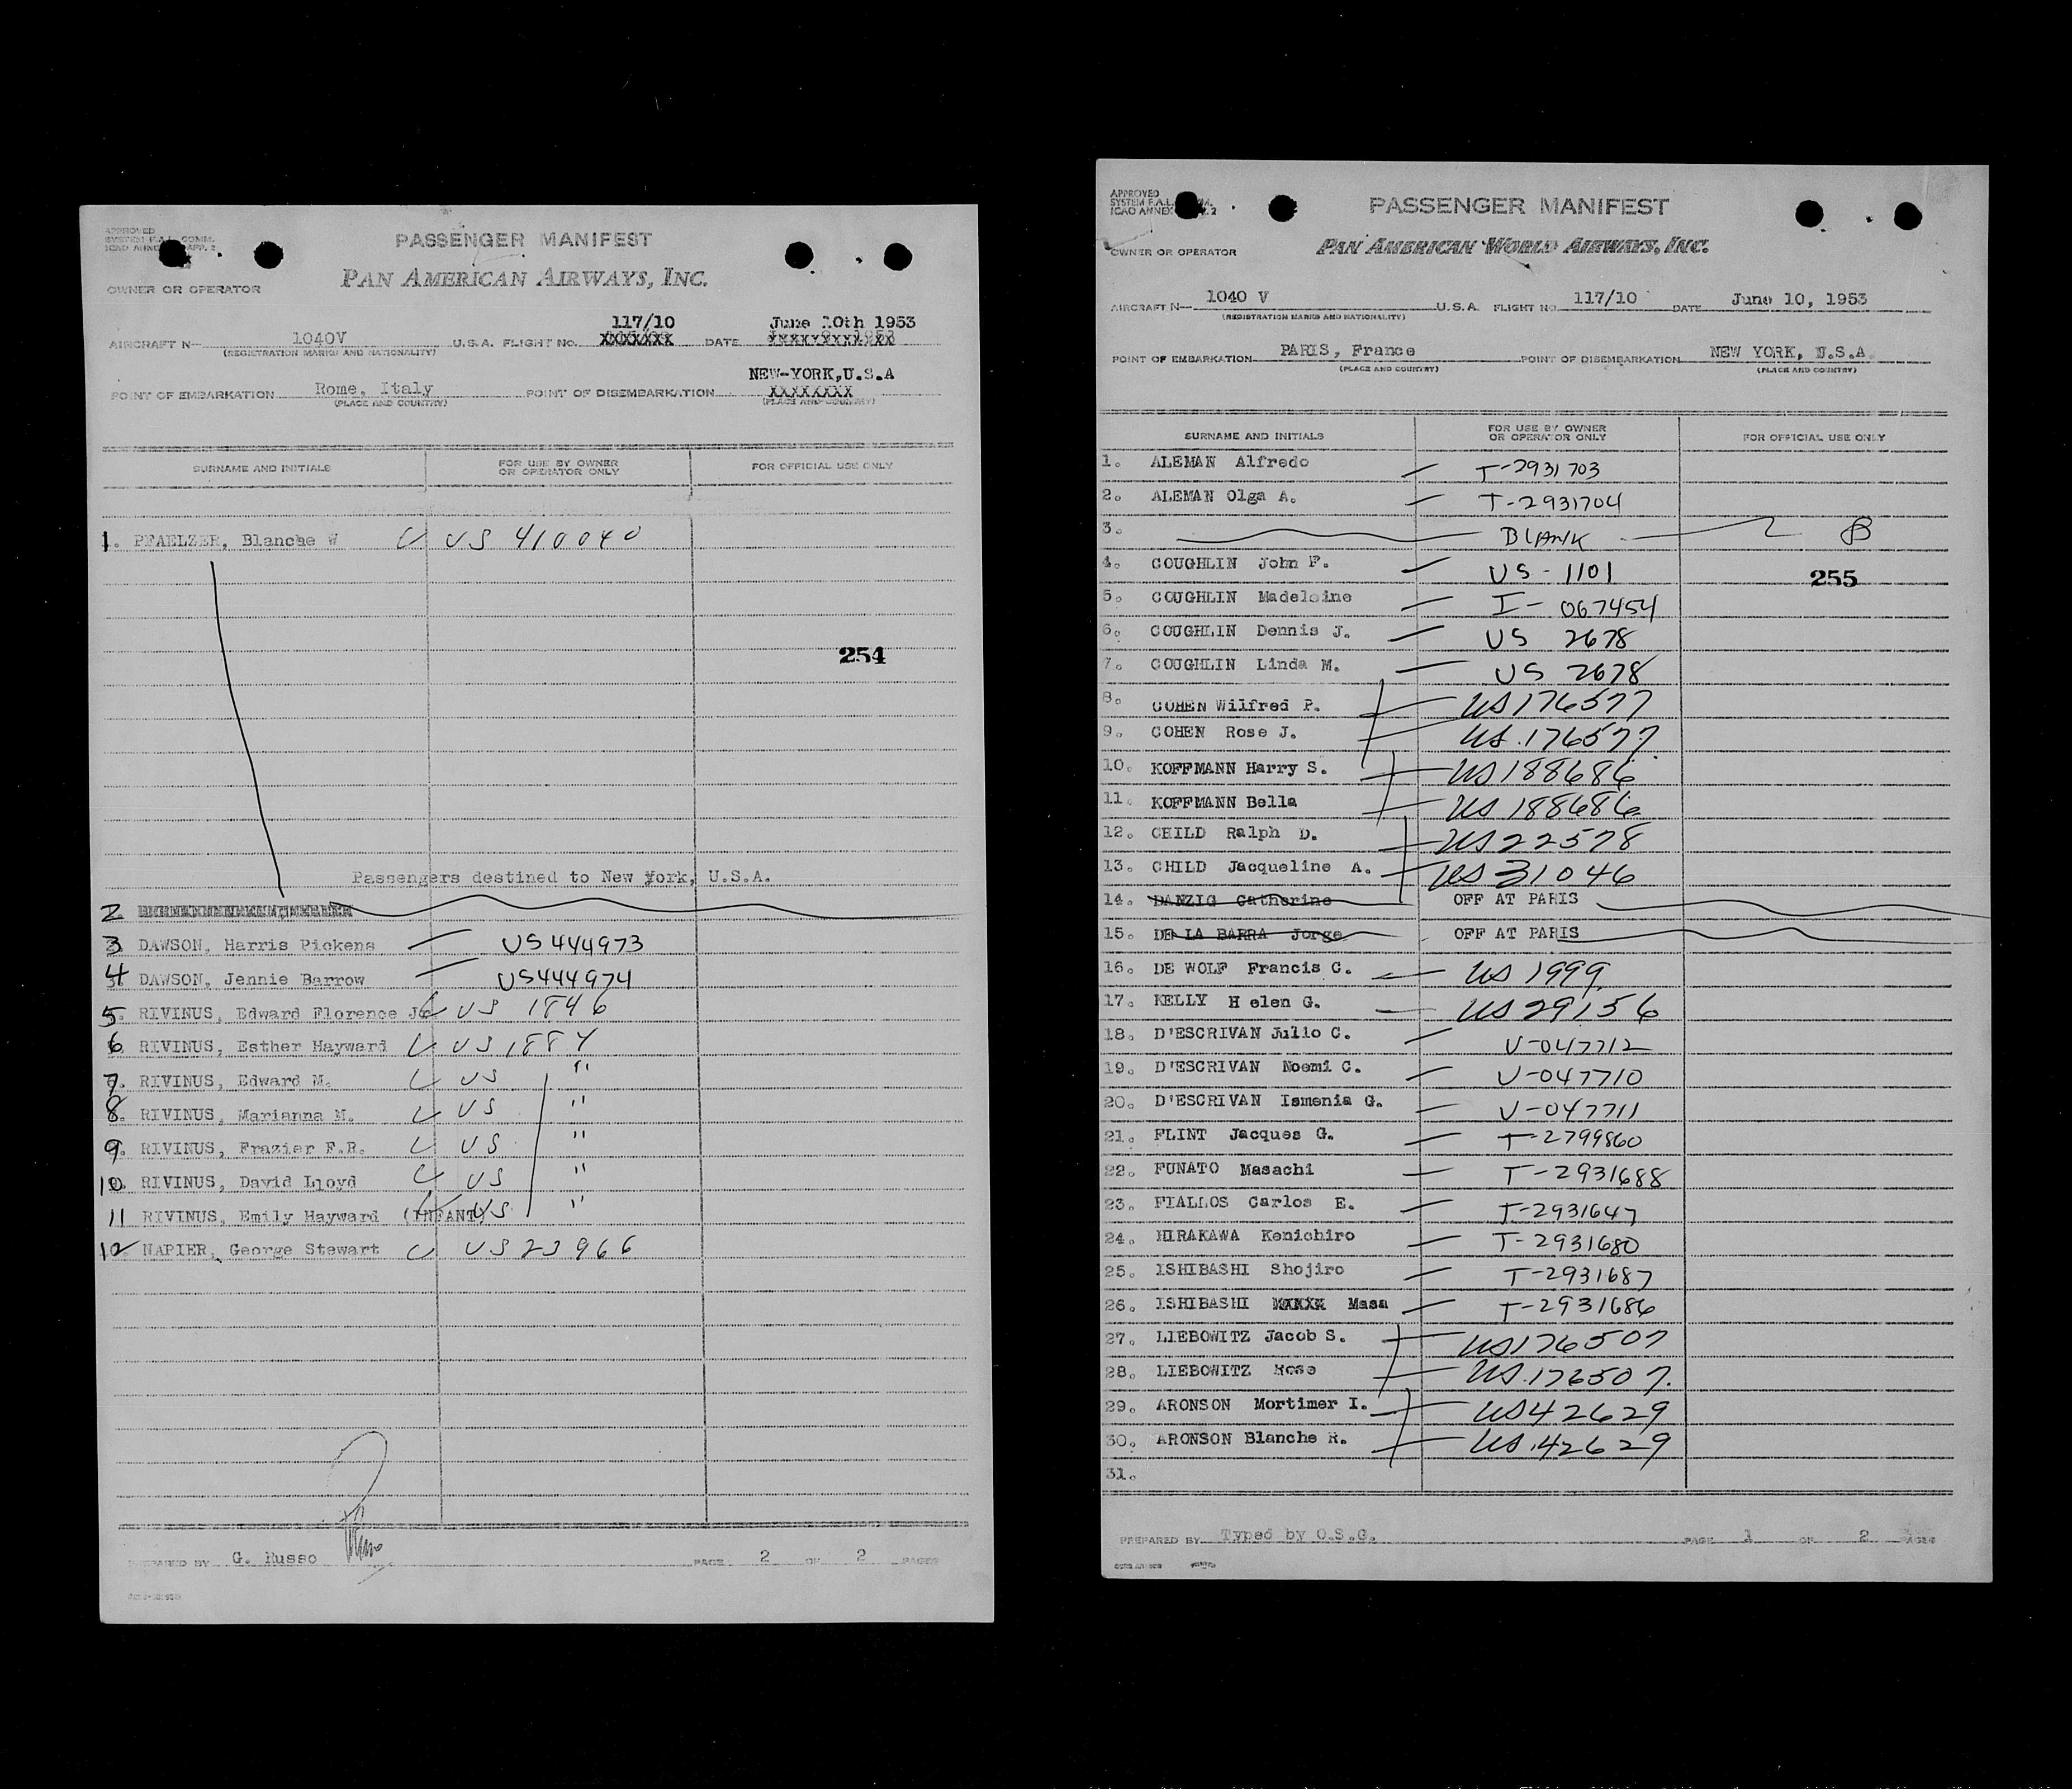 APPROVED
SYSTEM F.A.L. COMM.
PASSENGER MANIFEST
PAN AMERICAN AIRWAYS, INC.
OWNER OR OPERATOR
117/10 June 10th 1953
AIRCRAFT N— 1040V U.S.A. FLIGHT NO. XXXXXXX DATE
(REGISTRATION MARKS AND NATIONALITY)
NEW-YORK,U.S.A
POINT OF EMBARKATION Rome, Italy POINT OF DISEMBARKATION XXXXXXXX
(PLACE AND COUNTRY) (PLACE AND COUNTRY)
SURNAME AND INITIALS FOR USE BY OWNER OR OPERATOR ONLY FOR OFFICIAL USE ONLY
1. PFAELZER, Blanche W US 410040
254
Passengers destined to New York, U.S.A.
2
3 DAWSON, Harris Pickens US444973
4 DAWSON, Jennie Barrow US444974
5. RIVINUS, Edward Florence Jr US 1846
6 RIVINUS, Esther Hayward US 1884
7. RIVINUS, Edward M. US "
8. RIVINUS, Marianna M. US "
9. RIVINUS, Frazier F.R. US "
10 RIVINUS, David Lloyd US "
11 RIVINUS, Emily Hayward (INFANT) US "
12 NAPIER, George Stewart US 23966
PREPARED BY G. Russo PAGE 2 OF 2 PAGES
APPROVED
PASSENGER MANIFEST
PAN AMERICAN WORLD AIRWAYS, INC.
OWNER OR OPERATOR
AIRCRAFT N— 1040 V U.S.A. FLIGHT NO. 117/10 DATE June 10, 1953
(REGISTRATION MARKS AND NATIONALITY)
POINT OF EMBARKATION PARIS, France POINT OF DISEMBARKATION NEW YORK, U.S.A.
(PLACE AND COUNTRY) (PLACE AND COUNTRY)
SURNAME AND INITIALS FOR USE BY OWNER OR OPERATOR ONLY FOR OFFICIAL USE ONLY
1. ALEMAN Alfredo T-2931703
2. ALEMAN Olga A. T-2931704
3. BLANK B
4. COUGHLIN John F. US-1101
255
5. COUGHLIN Madeleine I-067454
6. COUGHLIN Dennis J. US 2678
7. COUGHLIN Linda M. US 2678
8. COHEN Wilfred P. US176577
9. COHEN Rose J. US.176577
10. KOFFMANN Harry S. US188686
11. KOFFMANN Bella US 188686
12. CHILD Ralph D. US22578
13. CHILD Jacqueline A. US31046
14. DANZIG Catherine OFF AT PARIS
15. DE LA BARRA Jorge OFF AT PARIS
16. DE WOLF Francis C. US 1999
17. KELLY H elen G. US29156
18. D'ESCRIVAN Julio C. V-047712
19. D'ESCRIVAN Noemi C. V-047710
20. D'ESCRIVAN Ismenia G. V-047711
21. FLINT Jacques G. T-2799860
22. FUNATO Masachi T-2931688
23. FIALLOS Carlos E. T-2931647
24. HIRAKAWA Kenichiro T-2931680
25. ISHIBASHI Shojiro T-2931687
26. ISHIBASHI Masa T-2931686
27. LIEBOWITZ Jacob S. US176507
28. LIEBOWITZ Rose US.176507.
29. ARONSON Mortimer I. US42629
30. ARONSON Blanche R. US.42629
31.
PREPARED BY Typed by O.S.G. PAGE 1 OF 2 PAGES